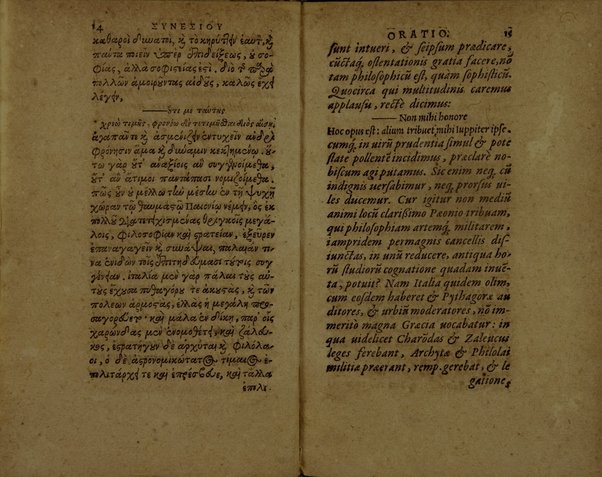 14 ΣΥΝΕΣΙΟΥ
καθαροὶ δύνανται, καὶ τὸ κηρύττειν ἑαυτὸν, καὶ
πάντα ποιεῖν ὑπὲρ ἐπιδείξεως, οὐ σο-
φίας, ἀλλὰ σοφιστείας ἐστί, διὸ
πολλῶν ἀμοιροῦντας αἰδοῦς, καλῶς ἔχει
λέγειν,
οὔτι με ταύτης
χρεὼ τιμῆς, φρονέω δὲ τετιμῆσθαι Διὸς αἴσῃ,
ἀγαπᾶν καὶ ἀσμενίζειν ἐντυχεῖν ἀνδρὶ
φρόνησιν ἅμα καὶ δύναμιν κεκτημένῳ. οὕ-
τω γὰρ οὔτ' ἀναξίοις συγγινόμεθα,
οὔτ' ἂν ἄτιμοι παντάπασι νομιζοίμεθα,
πῶς οὖν οὐ μέλλω τὴν μέσην ἐν τῇ ψυχῇ
χώραν τῷ θαυμασίῳ Παιονίῳ νέμειν, ὃς ἐκ
πολλοῦ διατετειχισμένας θριγκοῖς μεγά-
λοις, φιλοσοφίαν καὶ στρατείαν, ἐξεῦρεν
ἐπαναγαγεῖν καὶ συνάψαι, παλαιάν τι-
να ἐνιδὼν τοῖς ἐπιτηδεύμασι τούτοις συγ-
γένειαν. ἰταλία μὲν γὰρ πάλαι τοὺς αὐ-
τοὺς ἔχουσα πυθαγόρου τε ἀκουστὰς, καὶ τῶν
πόλεων ἁρμοστὰς, ἑλλὰς ἡ μεγάλη προ-
σαγορεύετο· καὶ μάλα ἐν δίκῃ, παρ' οἷς
χαρώνδας μὲν ἐνομοθέτει καὶ ζάλευ-
κος, ἐστρατήγουν δὲ ἀρχῦται καὶ φιλόλα-
οι, ὁ δὲ ἀστρονομικώτατος τίμαιος
ἐπολιτάρχει τε καὶ ἐπρέσβευε, καὶ τἄλλα
ἐπολι-
ORATIO. 15
sunt intueri, & seipsum prædicare,
cũctaq́; ostentationis gratia facere, nõ
tam philosophicũ est, quàm sophisticũ.
Quocirca qui multitudinis caremus
applausu, rectè dicimus:
Non mihi honore
Hoc opus est: alium tribuet, mihi Iuppiter ipse.
cumq́; in uirũ prudentia simul & pote
state pollentẽ incidimus, præclarè no-
biscum agi putamus. Sic enim neq; cũ
indignis uersabimur, neq; prorsus ui-
les ducemur. Cur igitur non mediũ
animi locũ clarißimo Pæonio tribuam,
qui philosophiam artemq́; militarem,
iampridem permagnis cancellis dis-
iunctas, in unũ reducere, antiqua ho-
rũ studiorũ cognatione quadam inuẽ-
ta, potuit? Nam Italia quidem olim,
cum eosdem haberet & Pythagoræ au
ditores, & urbiũ moderatores, nõ im-
meritò magna Græcia uocabatur: in
qua uidelicet Charõdas & Zaleucus
leges ferebant, Archytæ & Philolai
militiæ præerant, remp. gerebat, & le
gatione,